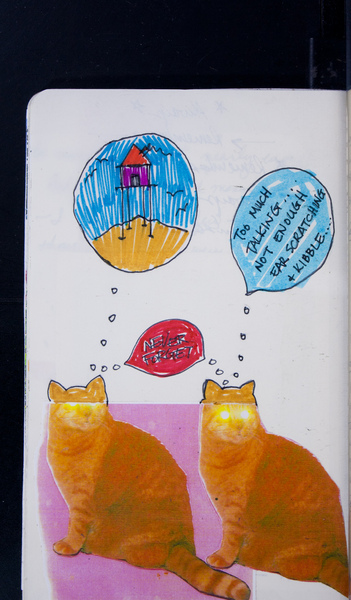 TOO MUCH
TALKING...
NOT ENOUGH
EAR SCRATCHING
+ KIBBLE...
NEVER
FORGET!